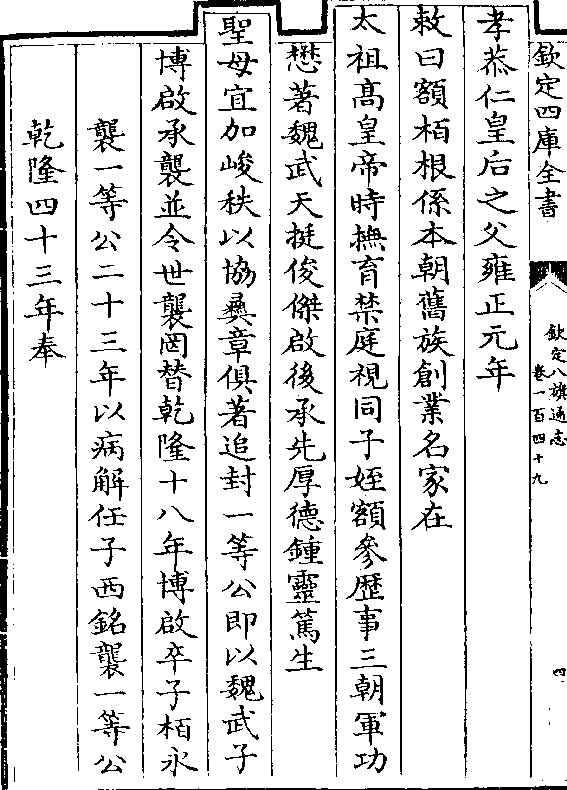 欽定四庫全書
欽定八旗通志
卷一百四十九
四
孝恭仁皇后之父雍正元年
敕曰額栢根係本朝舊族創業名家在
太祖高皇帝時撫育禁庭視同子姪額參歴事三朝軍功
懋著魏武天挺俊傑啟後承先厚德鍾靈篤生
聖母宜加峻秩以協彝章俱著追封一等公即以魏武子
博啟承襲並令世襲罔替乾隆十八年博啟卒子栢永
襲一等公二十三年以病解任子西銘襲一等公
乾隆四十三年奉